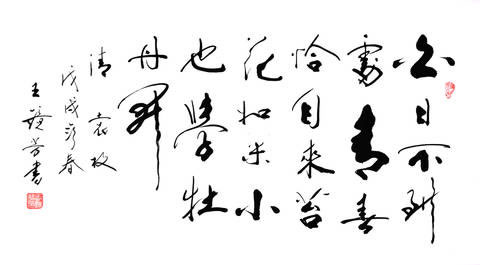 白日不到
處青春
恰自來苔
花如米小
也學牡
丹開
清 袁枚
戊戌春
王芳書